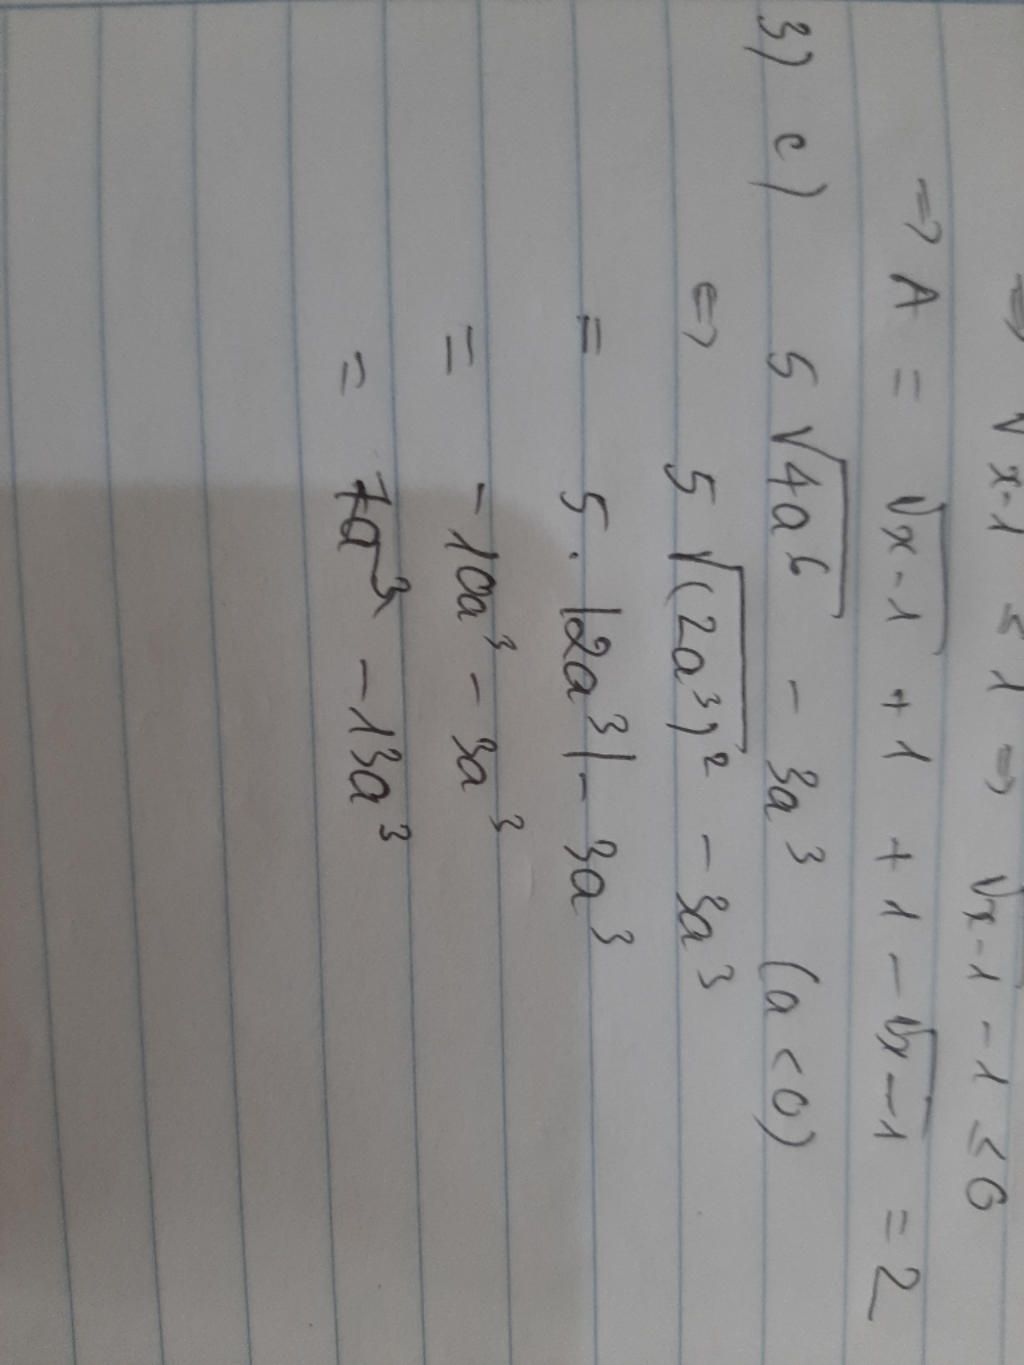 ⇒ √x-1 ≤ 1 ⇒ √x-1 - 1 ≤ 0
⇒ A = √x-1 + 1 + 1 - √x-1 = 2
3) c) 5√4a⁶ - 3a³ (a < 0)
⇔ 5√(2a³)² - 3a³
= 5.|2a³| - 3a³
= -10a³ - 3a³
= -13a³